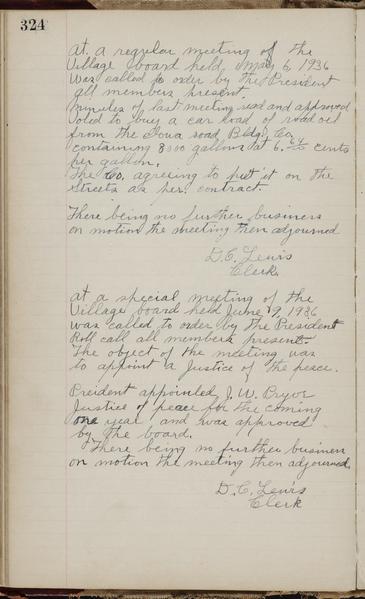 324
at a regular meeting of the
Village board held May 6, 1936
Was called to order by the President
all members present.
minutes of last meeting read and approved
voted to buy a car load of road oil
from the Iowa road Bldg. Co.
containing 8000 gallons at 6. cents
per gallon.
The Co. agreeing to put it on the
Streets as per contract.
There being no further business
on motion the meeting then adjourned
D. C. Lewis
Clerk.
at a special meeting of the
Village board held June 9, 1936
was called to order by the President
Roll call all members present.
The object of the meeting was
to appoint a Justice of the peace.
Preident appointed J. W. Pryor
Justice of peace for the coming
one year and was approved
by the board.
There being no further business
on motion the meeting then adjourned.
D. C. Lewis
Clerk